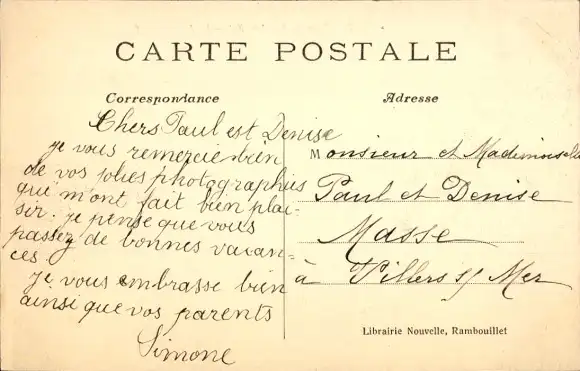 CARTE POSTALE
Correspondance
Chers Paul est Denise
je vous remercie bien
de vos jolies photographies
qui m'ont fait bien plai-
sir. je pense que vous
passez de bonnes vacan-
ces
Je vous embrasse bien
ainsi que vos parents
Simone
Adresse
Monsieur et Mademoiselle
Paul et Denise
Masse
à Villers s/ Mer
Librairie Nouvelle, Rambouillet